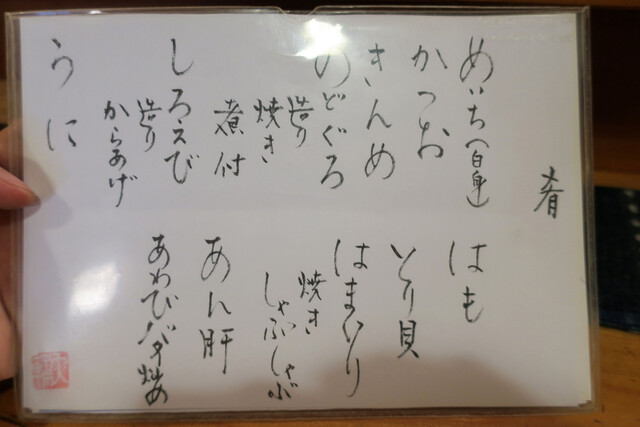 肴
めいち（白身）
かつお
きんめ
のどぐろ
造り
焼き
煮付
しろえび
造り
からあげ
うに
はも
とり貝
はまぐり
焼き
しゃぶしゃぶ
あん肝
あわびバタ焼め